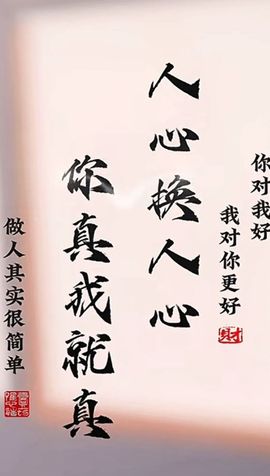 你对我好
我对你更好
人心换人心
你真我就真
做人其实很简单